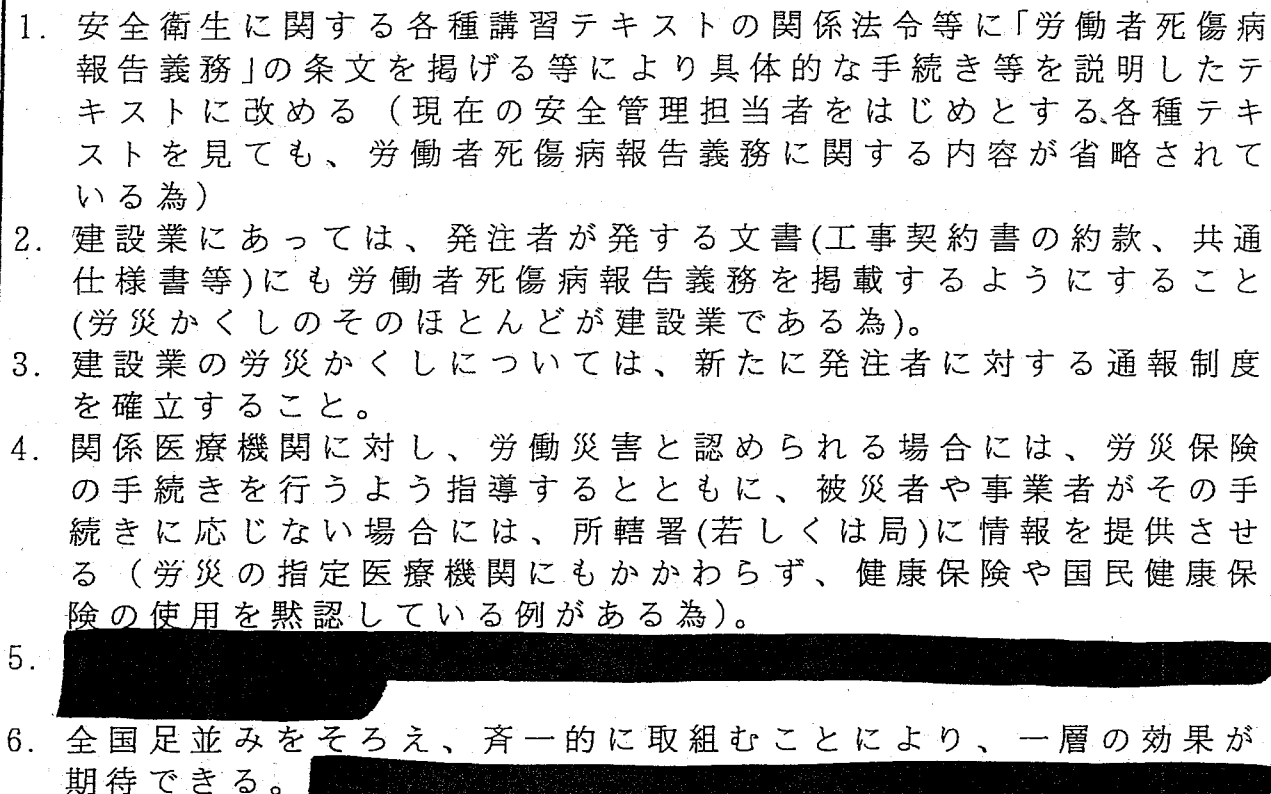 1. 安全衛生に関する各種講習テキストの関係法令等に「労働者死傷病
報告義務」の条文を掲げる等により具体的な手続き等を説明したテ
キストに改める（現在の安全管理担当者をはじめとする、各種テキ
ストを見ても、労働者死傷病報告義務に関する内容が省略されて
いる為）
2. 建設業にあっては、発注者が発する文書(工事契約書の約款、共通
仕様書等)にも労働者死傷病報告義務を掲載するようにすること
(労災かくしのそのほとんどが建設業である為)。
3. 建設業の労災かくしについては、新たに発注者に対する通報制度
を確立すること。
4. 関係医療機関に対し、労働災害と認められる場合には、労災保険
の手続きを行うよう指導するとともに、被災者や事業者がその手
続きに応じない場合には、所轄署(若しくは局)に情報を提供させ
る（労災の指定医療機関にもかかわらず、健康保険や国民健康保
険の使用を黙認している例がある為)。
5.
6. 全国足並みをそろえ、斉一的に取組むことにより、一層の効果が
期待できる。